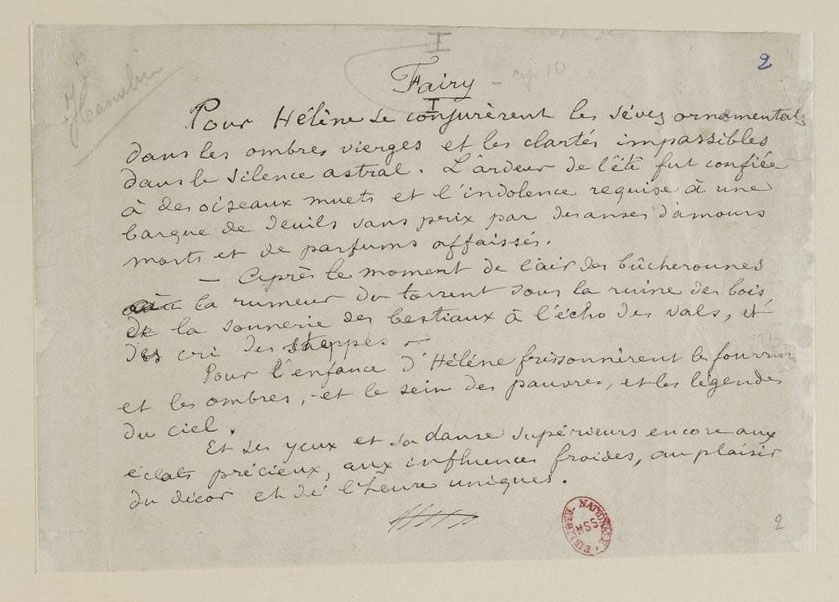 I
2
Fairy
I
Pour Hélène se conjurèrent les sèves ornementales
dans les ombres vierges et les clartés impassibles
dans le silence astral. L'ardeur de l'été fut confiée
à des oiseaux muets et l'indolence requise à une
barque de deuils sans prix par des anses d'amours
morts et de parfums affaissés.
— Après le moment de l'air des bûcheronnes
à la rumeur du torrent sous la ruine des bois
de la sonnerie des bestiaux à l'écho des vals, et
des cri des steppes —
Pour l'enfance d'Hélène frissonnèrent les fourrures
et les ombres, — et le sein des pauvres, et les légendes
du ciel.
Et ses yeux et sa danse supérieurs encore aux
éclats précieux, aux influences froides, au plaisir
du décor et de l'heure uniques.
BIBLIOTH. NATIONALE
MSS
2